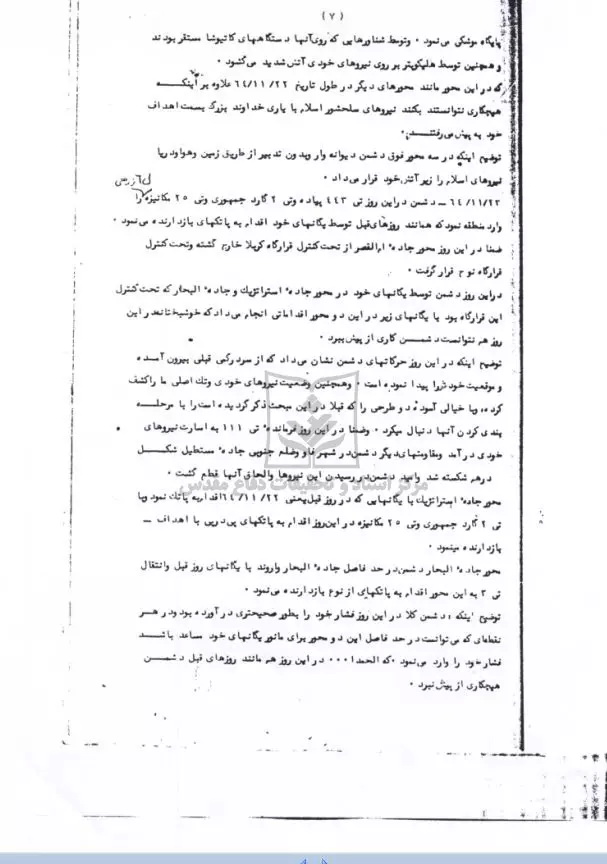 (۷)
پایگاه موشکی می‌نمود ۰ وتوسط شناورهایی که روی آنها دستگاههای کاتیوشا مستقر بودند
و همچنین توسط هلیکوپتر بر روی نیروهای خودی آتش شدید می‌گشود ۰
که در این محور مانند محورهای دیگر در طول تاریخ ۶۴/۱۱/۲۲ علاوه بر اینکه
هیچکاری نتوانستند بکنند نیروهای سلحشور اسلام با یاری خداوند بزرگ بسمت اهداف
خود به پیش می‌رفتند۰
توضیح اینکه در سه محور فوق دشمن دیوانه وار وبدون تدبیر از طریق زمین وهوا ودریا
نیروهای اسلام را زیر آتش خود قرار می‌داد ۰
۶۴/۱۱/۲۳ ــ دشمن در این روز تی ۴۴۳ پیاده وتی ۲ گارد جمهوری وتی ۲۵ مکانیزه را
وارد منطقه نمود که همانند روزهای قبل توسط یگانهای خود اقدام به پاتکهای بازدارنده می‌نمود ۰
ضمنا در این روز محور جاده ام‌القصر از تحت کنترل قرارگاه کربلا خارج گشته وتحت کنترل
قرارگاه نوح قرار گرفت ۰
در این روز دشمن توسط یگانهای خود در محور جاده استراتژیک و جاده البحار که تحت کنترل
این قرارگاه بود با یگانهای زیر در این دو محور اقداماتی انجام می‌داد که خوشبختانه در این
روز هم نتوانست دشمن کاری از پیش ببرد ۰
توضیح اینکه در این روز حرکتهای دشمن نشان می‌داد که از سردرگمی قبلی بیرون آمده
و موقعیت خود را پیدا نموده است ۰ وهمچنین وضعیت نیروهای خودی وتک اصلی ما راکشف
کرده، وبا خیالی آسوده و طرحی را که قبلا در این مبحث ذکر گردیده است را با مرحله
بندی کردن آنها دنبال میکرد ۰ وضمنا در این روز فرمانده تی ۱۱۱ به اسارت نیروهای
خودی در آمد ومقاومتهای دیگر دشمن در شهر فاو وضلع جنوبی جاده مستطیل شکل
درهم شکسته شد وامید دشمن در رسیدن این نیروها والحاق آنها قطع گشت ۰
مرکز اسناد و تحقیقات دفاع مقدس
محور جاده استراتژیک با یگانهایی که در روز قبل یعنی ۶۴/۱۱/۲۲ اقدام به پاتک نمود وبا
تی ۲ گارد جمهوری وتی ۲۵ مکانیزه در این روز اقدام به پاتکهای پی‌درپی با اهداف ــ
بازدارنده مینمود ۰
محور جاده البحار دشمن در حد فاصل جاده البحار واروند با یگانهای روز قبل وانتقال
تی ۳ به این محور اقدام به پاتکهای از نوع بازدارنده می‌نمود ۰
توضیح اینکه : دشمن کلا در این روز فشار خود را بطور صحیحتری در آورده بود ودر هر
نقطه‌ای که می‌توانست در حد فاصل این دو محور برای مانور یگانهای خود مساعد باشد
فشار خود را وارد می‌نمود ۰که الحمدا۰۰۰ در این روز هم مانند روزهای قبل دشمن
هیچکاری از پیش نبرد ۰